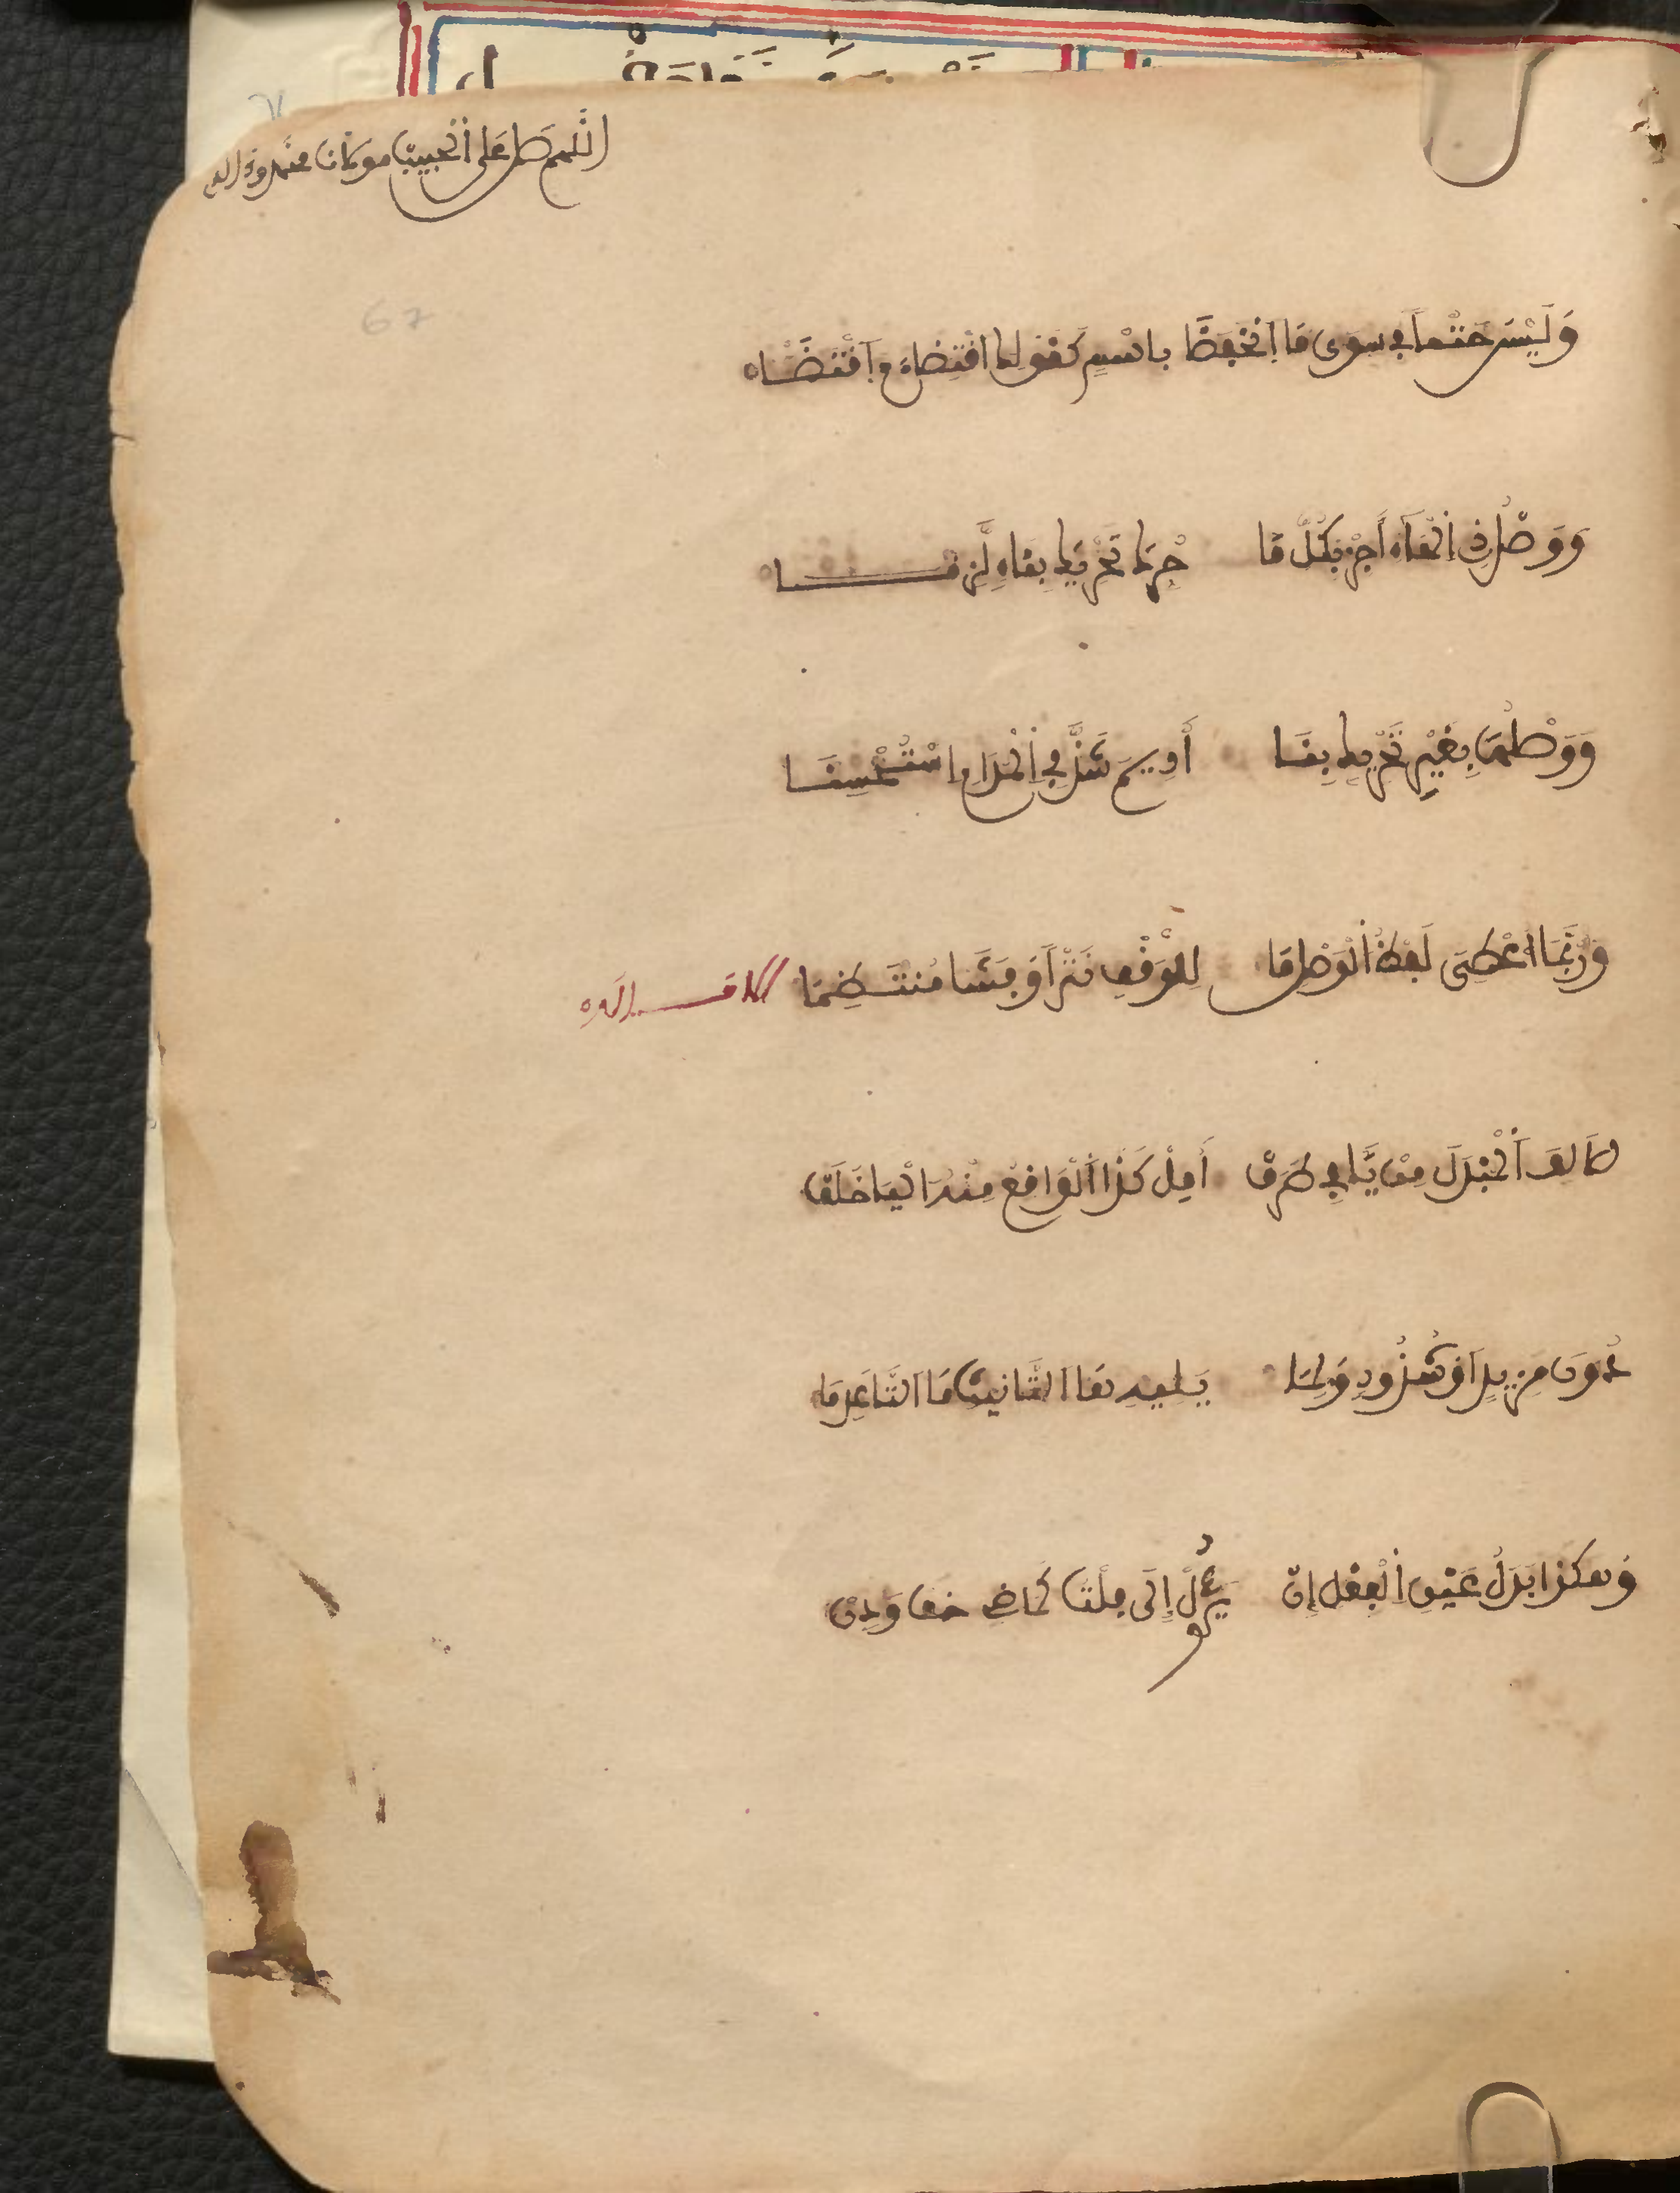 اللهم صل على الحبيب مولانا محمد وءاله
67
وَلَيْسَ حَتْماً فِي سِوَى مَا انْخَفَضَا بِاسْمٍ كَقَوْلِ اقْتِضَاءَ مَ اقْتَضَاه
وَوَصْلُ ذِي الْهَاءِ أَجِزْ بِكُلِّ مَا حُرِّكَ تَحْرِيكَ بِنَاءٍ لَزِمَا
وَوَصْلُهَا بِغَيْرِ تَحْرِيكِ بِنَا أُدِيمَ شَذَّ فِي الْمُدَامِ اسْتُحْسِنَا
وَرُبَّمَا اعْطِيَ لَفْظُ الْوَصْلِ مَا لِلْوَقْفِ نَثْراً وَفَشَا مُنْتَظِمَا الامــالة
الَالِفَ الْمُبْدَلَ مِن يَّا فِي طَرَفْ أَمِلْ كَذَا الْوَاقِعُ مِنْهُ الْيَا خَلَفْ
دُونَ مَزِيدٍ اَوْ شُذُوذٍ وَلِمَا يَلِيهِ هَا التَّانِيثِ مَا الْهَا عَدِمَا
وَهكذا بَدَلُ عَيْنِ الْفِعْلِ إِنْ يَؤُلْ إِلَى فِلْتُ كَمَاضِ خَفْ وَدِنْ